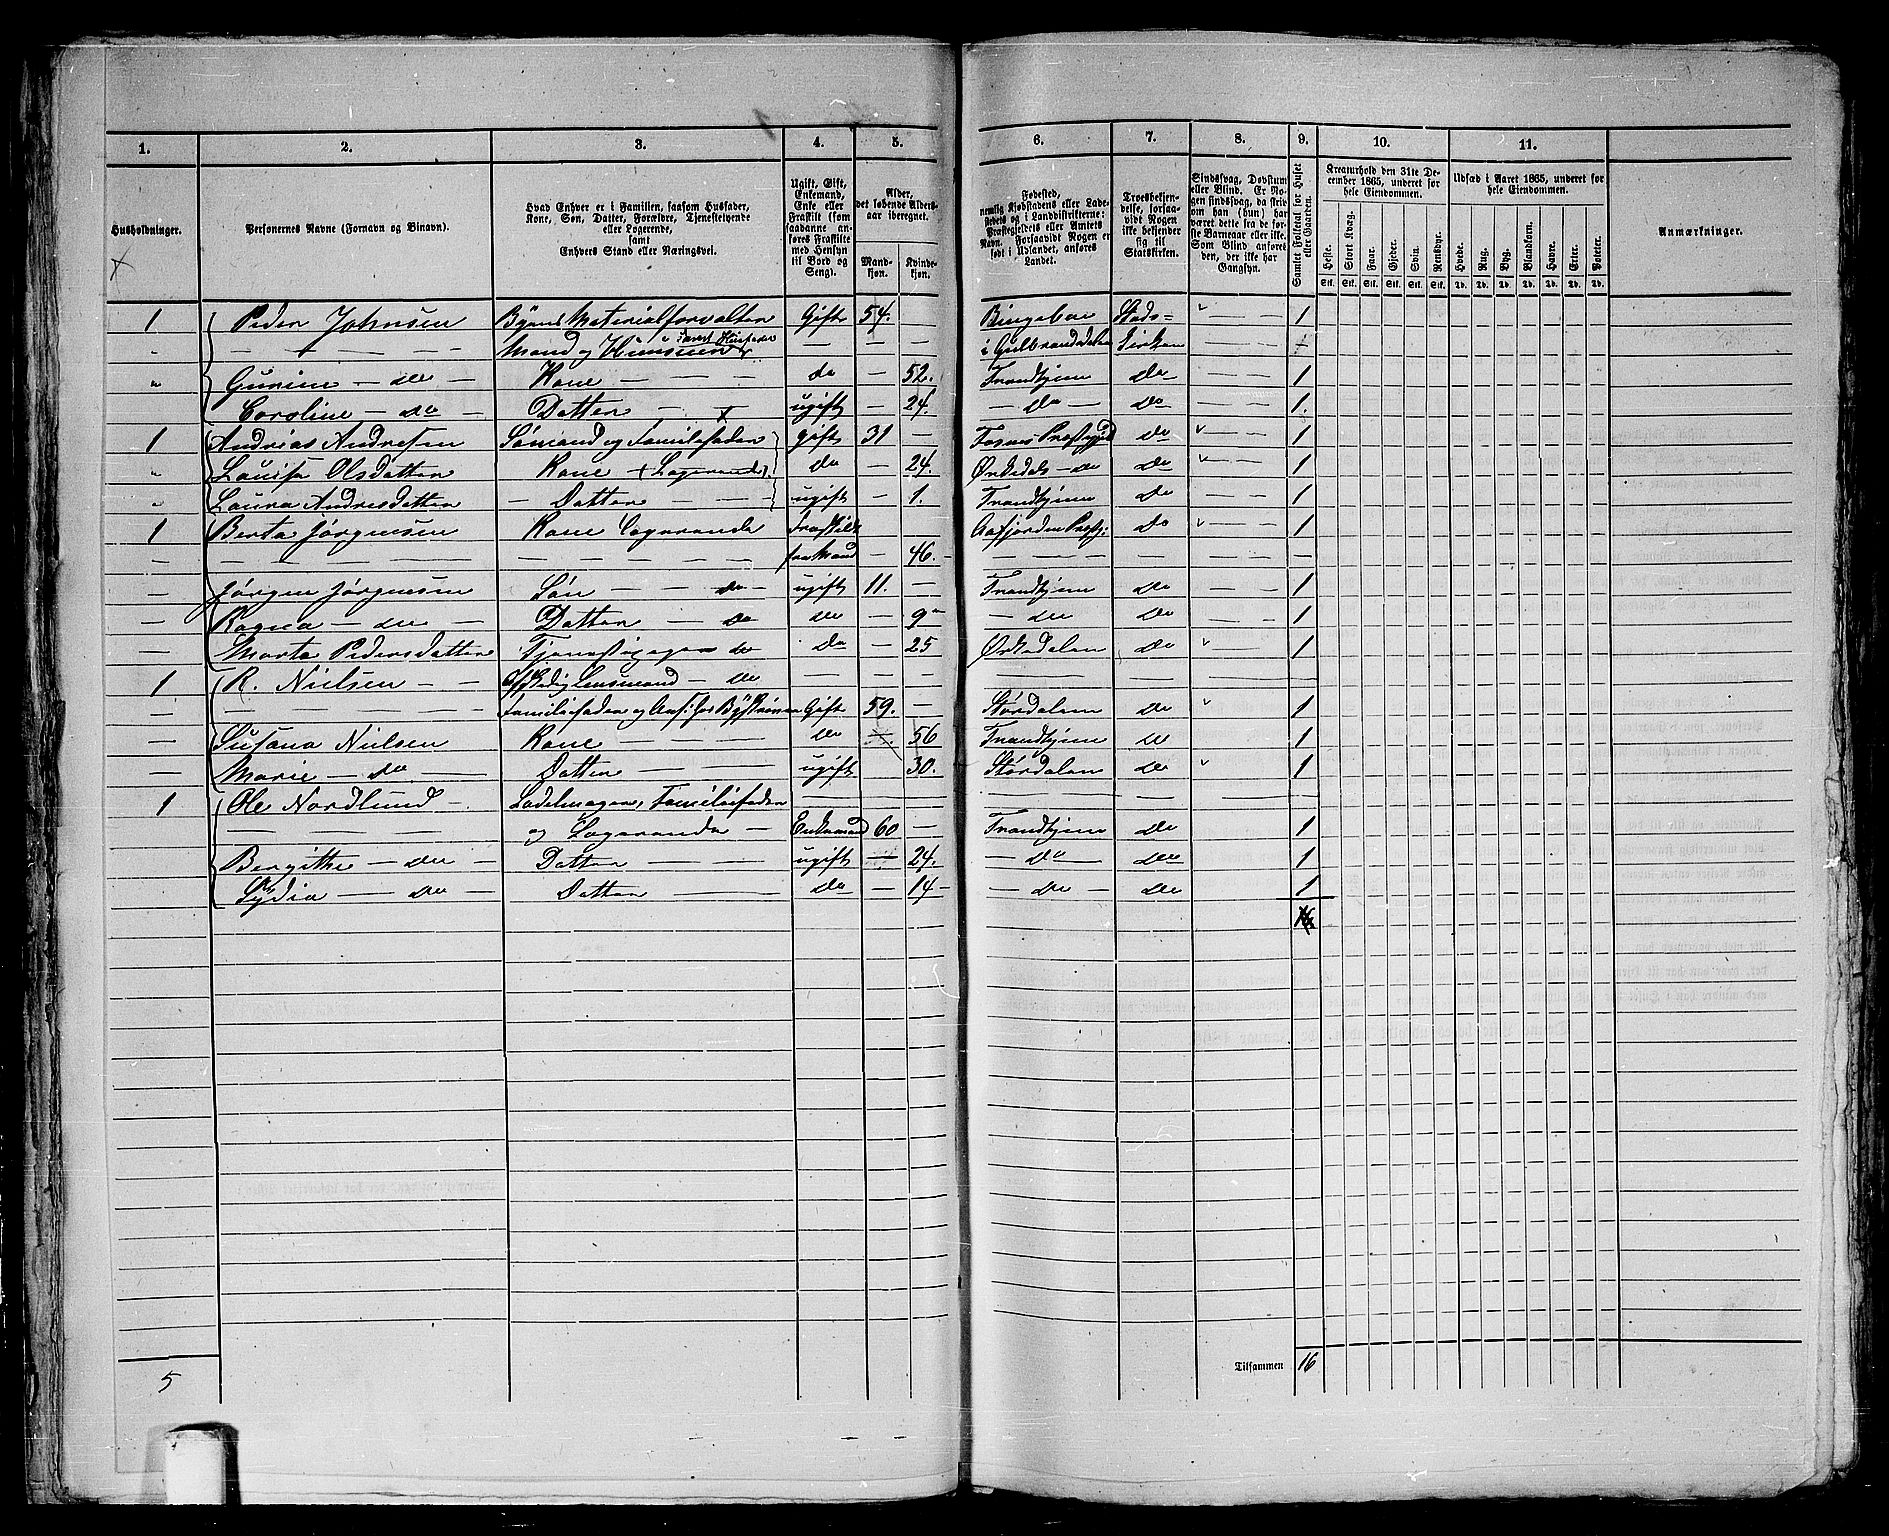 1. 2. 3. 4. 5. 6. 7. 8. 9. 10. 11.
Husholdninger.
Personernes Navne (Fornavn og Binavn).
Hvad Enhver er i Familien, saasom Husfader,
Kone, Søn, Datter, Forældre, Tjenestetyende
eller Logerende,
samt
Enhvers Stand eller Næringsvei.
Ugift, Gift,
Enkemand,
Enke eller
Fraskilt (som
saadanne an-
føres Fraskilte
med Hensyn
til Bord og
Seng).
Alder,
det løbende Alders-
aar iberegnet.
Mand-
kjøn.
Kvinde-
kjøn.
Fødested,
nemlig Kjøbstadens eller Lade-
stedets og i Landdistrikterne:
Præstegjeldets eller Amtets
Navn. Forsaavidt Nogen er
født i Udlandet, anføres
Landet.
Troesbekjen-
delse, forsaa-
vidt Nogen
ikke bekjender
sig til
Statskirken.
Sindssvag, Døvstum
eller Blind. Er No-
gen sindssvag, da skriv
om han (hun) har
været dette fra de før-
ste Barneaar eller ikke.
Som Blind anføres
den, der ikke har
Gangsyn.
Samlet Folketal for Huset
eller Gaarden.
Kreaturhold den 31te De-
cember 1865, underet for
hele Eiendommen.
Heste. Stort Kvæg. Faar. Gjeder. Svin. Rensdyr.
Stk. Stk. Stk. Stk. Stk. Stk.
Udsæd i Aaret 1865, underet for
hele Eiendommen.
Hvede. Rug. Byg. Blandkorn. Havre. Erter. Poteter.
Td. Td. Td. Td. Td. Td. Td.
Anmærkninger.
1 Peder Johnsen Byens Materialforvalter Gift 54. Ringeboe Stads= 1
Mand og i Gulbrandsdalen Kirken
" Gurine — do — Kone do 52. Trondhjem do 1
Caroline — do — Datter ugift 24. — do — do 1.
1 Andrias Andresen Sømand og Familiefader gift 31 Fosnes Præstegjd do 1
" Louisa Olsdatter Kone (Logerende) do 24. Ørkedals — do do 1
" Laura Andresdatter Datter ugift 1. Trondhjem do 1
1 Berta Jørgensen Kone Logerende fraskildt Aafjorden Præstgj. do 1
fra Mand 46.
Jørgen Jørgensen Søn — do ugift 11. Trondhjem do 1
Ragna — do — Datter do do 9 — do do 1
Marta Pedersdatter Tjenestepige do do 25 Ørkedalen do 1
1 R. Nielsen Lensmand — do
Familiefader og Gift 59. Størdalen do 1
Susana Nielsen Kone do 56 Trondhjem do 1
Marie — do — Datter ugift 30. Størdalen do 1
1 Ole Nordlund Familiefader
og Logerende — Enkemand 60 Trondhjem do 1
Bergitte — do — Datter ugift 24. — do do 1
Lydia — do Datter do 14 — do — do 1
5 Tilsammen 16